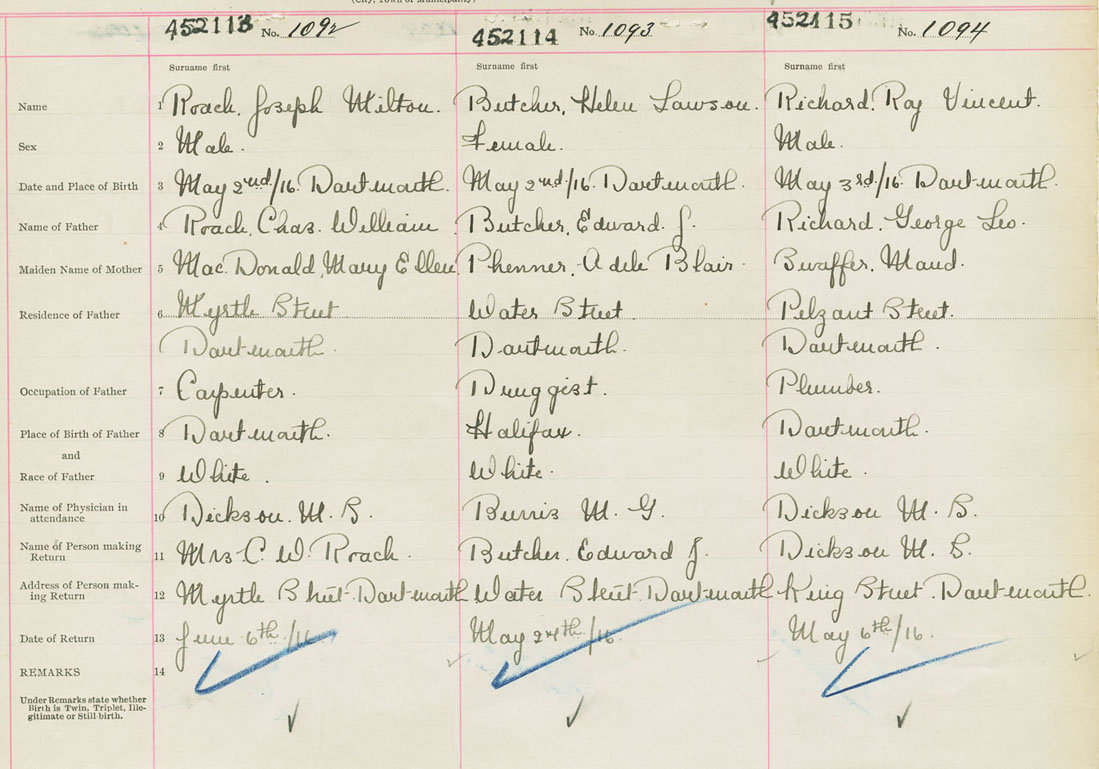 (City, Town or Municipality)
452113 No. 1092 452114 No. 1093 452115 No. 1094
Surname first Surname first Surname first
Name 1 Roach, Joseph Milton. Butcher, Helen Lawson. Richard, Roy Vincent.
Sex 2 Male. Female. Male.
Date and Place of Birth 3 May 2nd/16. Dartmouth. May 2nd/16. Dartmouth. May 3rd/16. Dartmouth.
Name of Father 4 Roach, Chas. William Butcher, Edward J. Richard, George Leo.
Maiden Name of Mother 5 Mac Donald, Mary Ellen Phenner, Adele Blair. Swaffer, Maud.
Residence of Father 6 Myrtle Street Water Street. Pelzant Street.
Dartmouth. Dartmouth. Dartmouth.
Occupation of Father 7 Carpenter. Druggist. Plumber.
Place of Birth of Father 8 Dartmouth. Halifax. Dartmouth.
and
Race of Father 9 White. White. White.
Name of Physician in
attendance 10 Dickson. M. S. Burris M. G. Dickson M. S.
Name of Person making
Return 11 Mrs C. W. Roach. Butcher. Edward J. Dickson M. S.
Address of Person mak-
ing Return 12 Myrtle Street. Dartmouth Water Street. Dartmouth King Street. Dartmouth.
Date of Return 13 June 6th/16 May 24th/16. May 6th/16.
REMARKS 14
Under Remarks state whether
Birth is Twin, Triplet, Ille-
gitimate or Still birth.